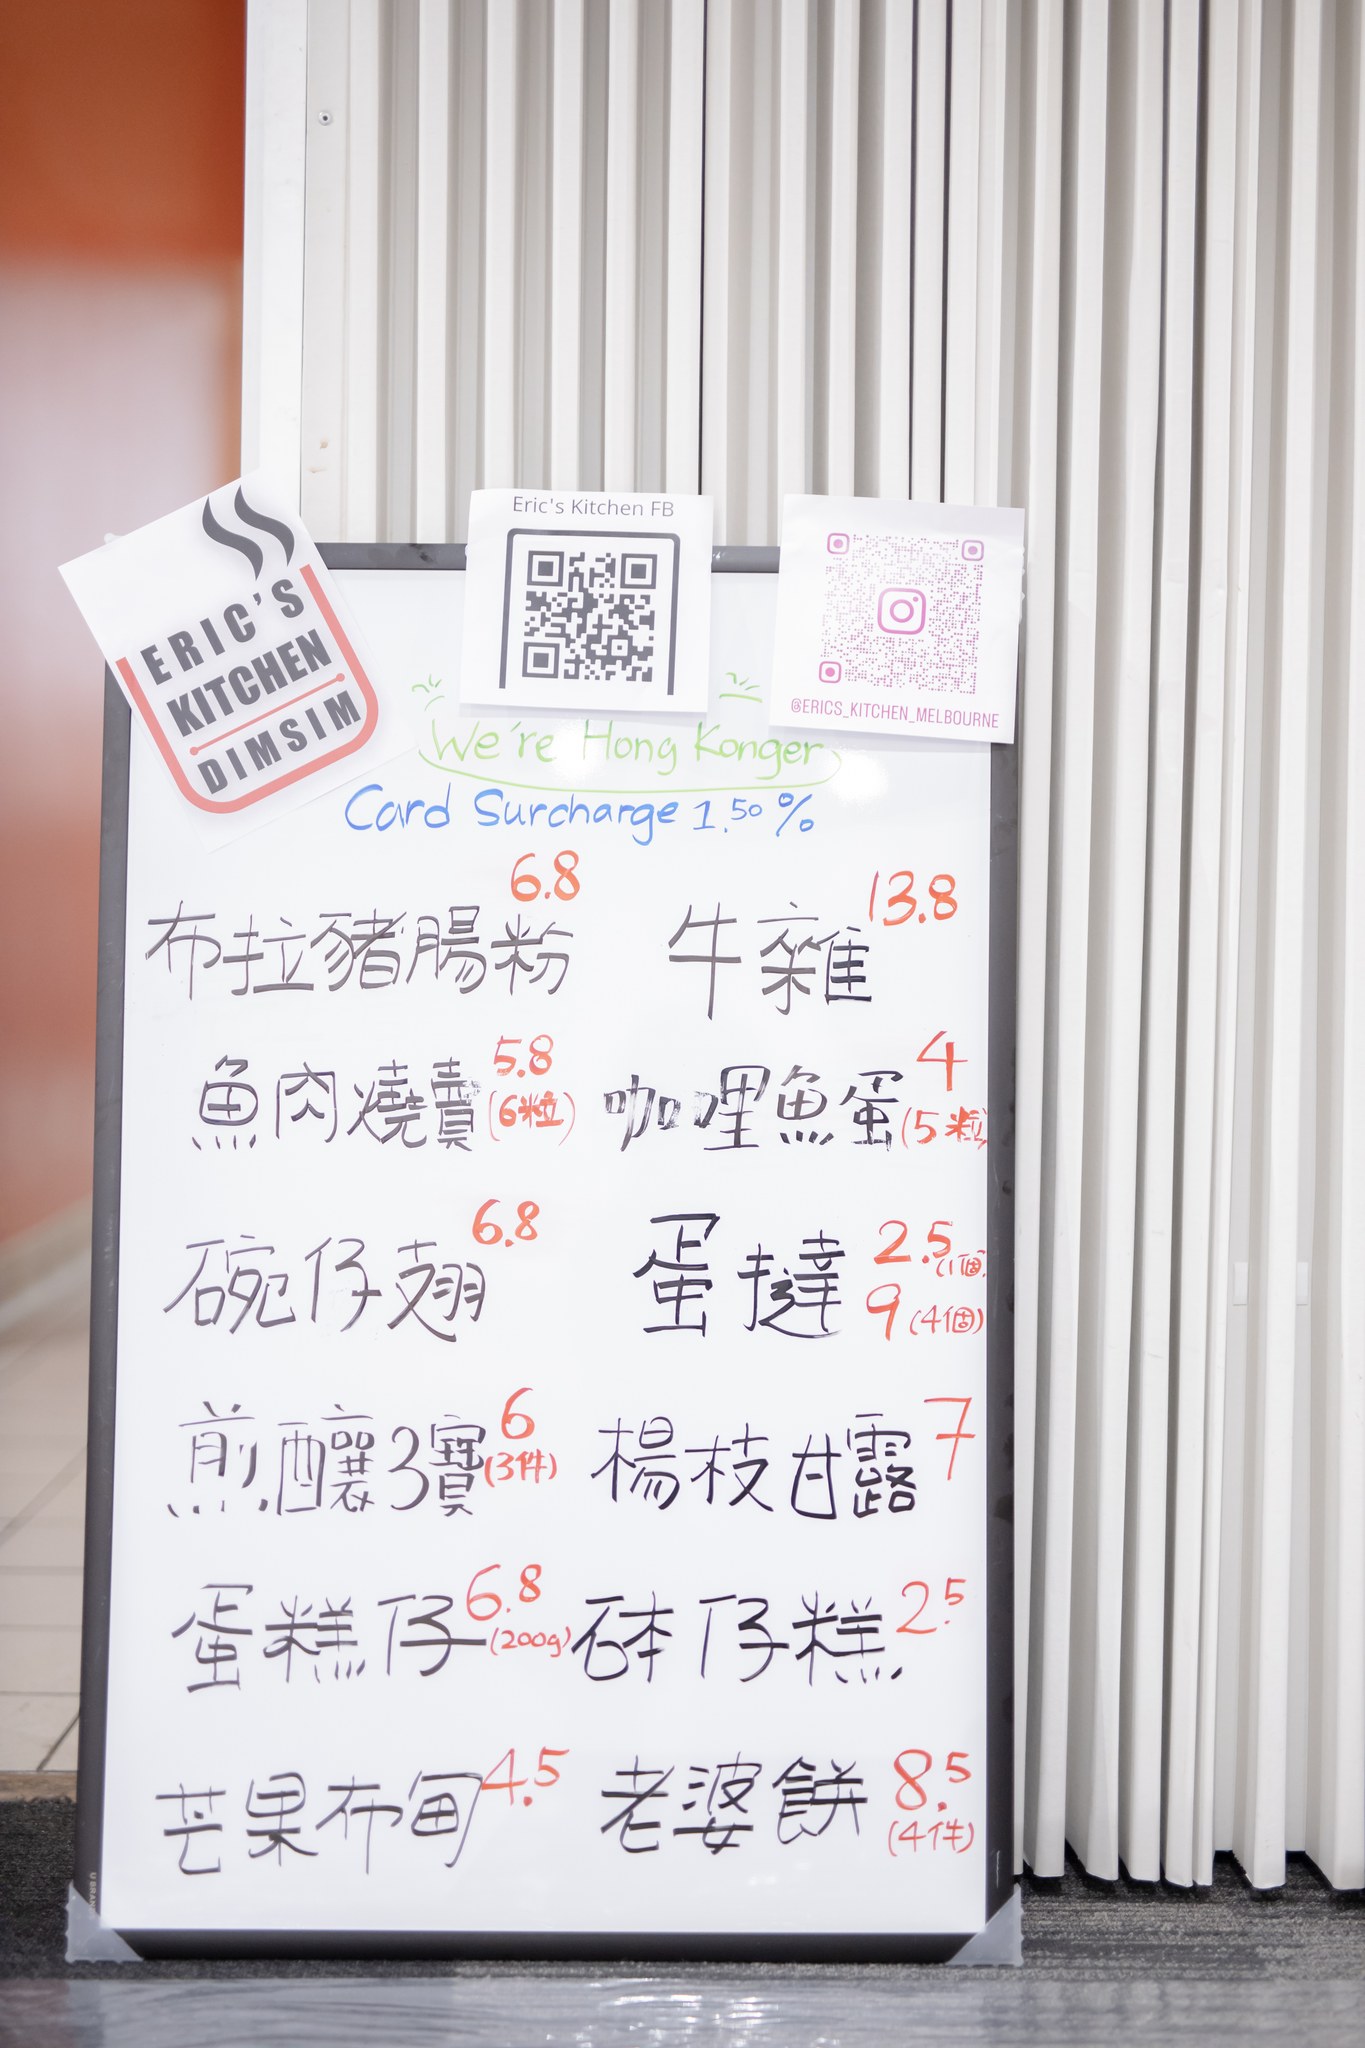 ERIC'S
KITCHEN
DIMSIM
Eric's Kitchen FB
@ERICS_KITCHEN_MELBOURNE
We're Hong Konger
Card Surcharge 1.50%
布拉豬腸粉 6.8
牛雜 13.8
魚肉燒賣 5.8 (6粒)
咖哩魚蛋 4 (5粒)
碗仔翅 6.8
蛋撻 2.5 (1個)
9 (4個)
煎釀3寶 6 (3件)
楊枝甘露 7
蛋糕仔 6.8 (200g)
砵仔糕 2.5
芒果布甸 4.5
老婆餅 8.5 (4件)